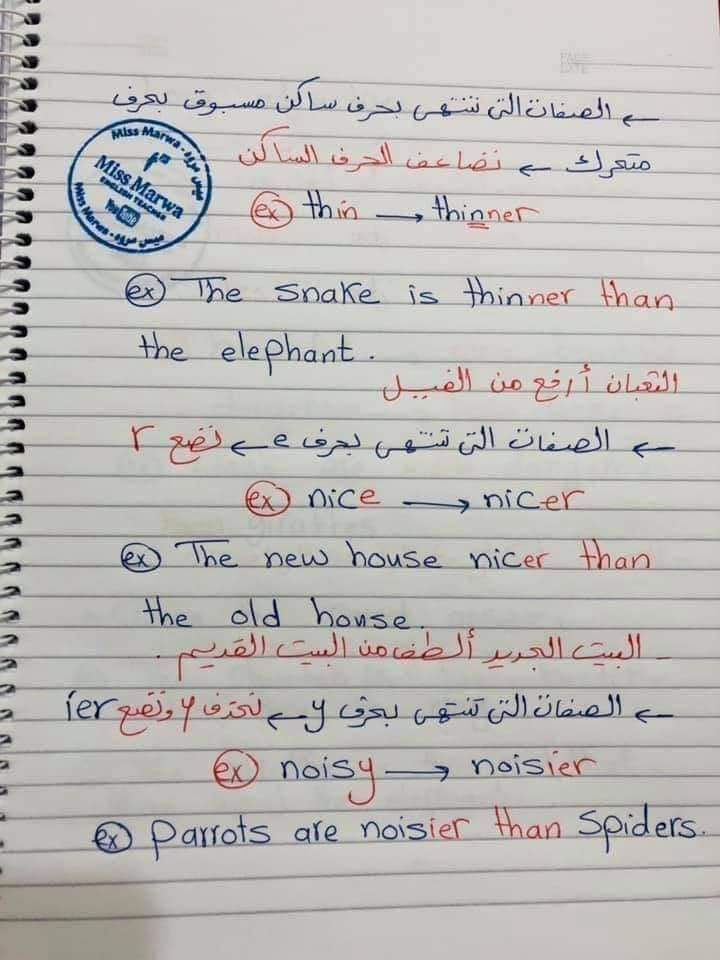 ← الصفات التى تنتهى بحرف ساكن مسبوق بحرف
متحرك ← نضاعف الحرف الساكن
Miss Marwa - ميس مروه
Miss Marwa
ENGLISH TEACHER
YouTube
Miss Marwa - ميس مروه
ex thin → thinner
ex The snake is thinner than
the elephant.
الثعبان أرفع من الفيل
← الصفات التى تنتهى بحرف e ← نضع r
ex nice → nicer
ex The new house nicer than
the old house.
- البيت الجديد ألطف من البيت القديم .
← الصفات التى تنتهى بحرف y ← نحذف y ونضع ier
ex noisy → noisier
ex Parrots are noisier than Spiders.